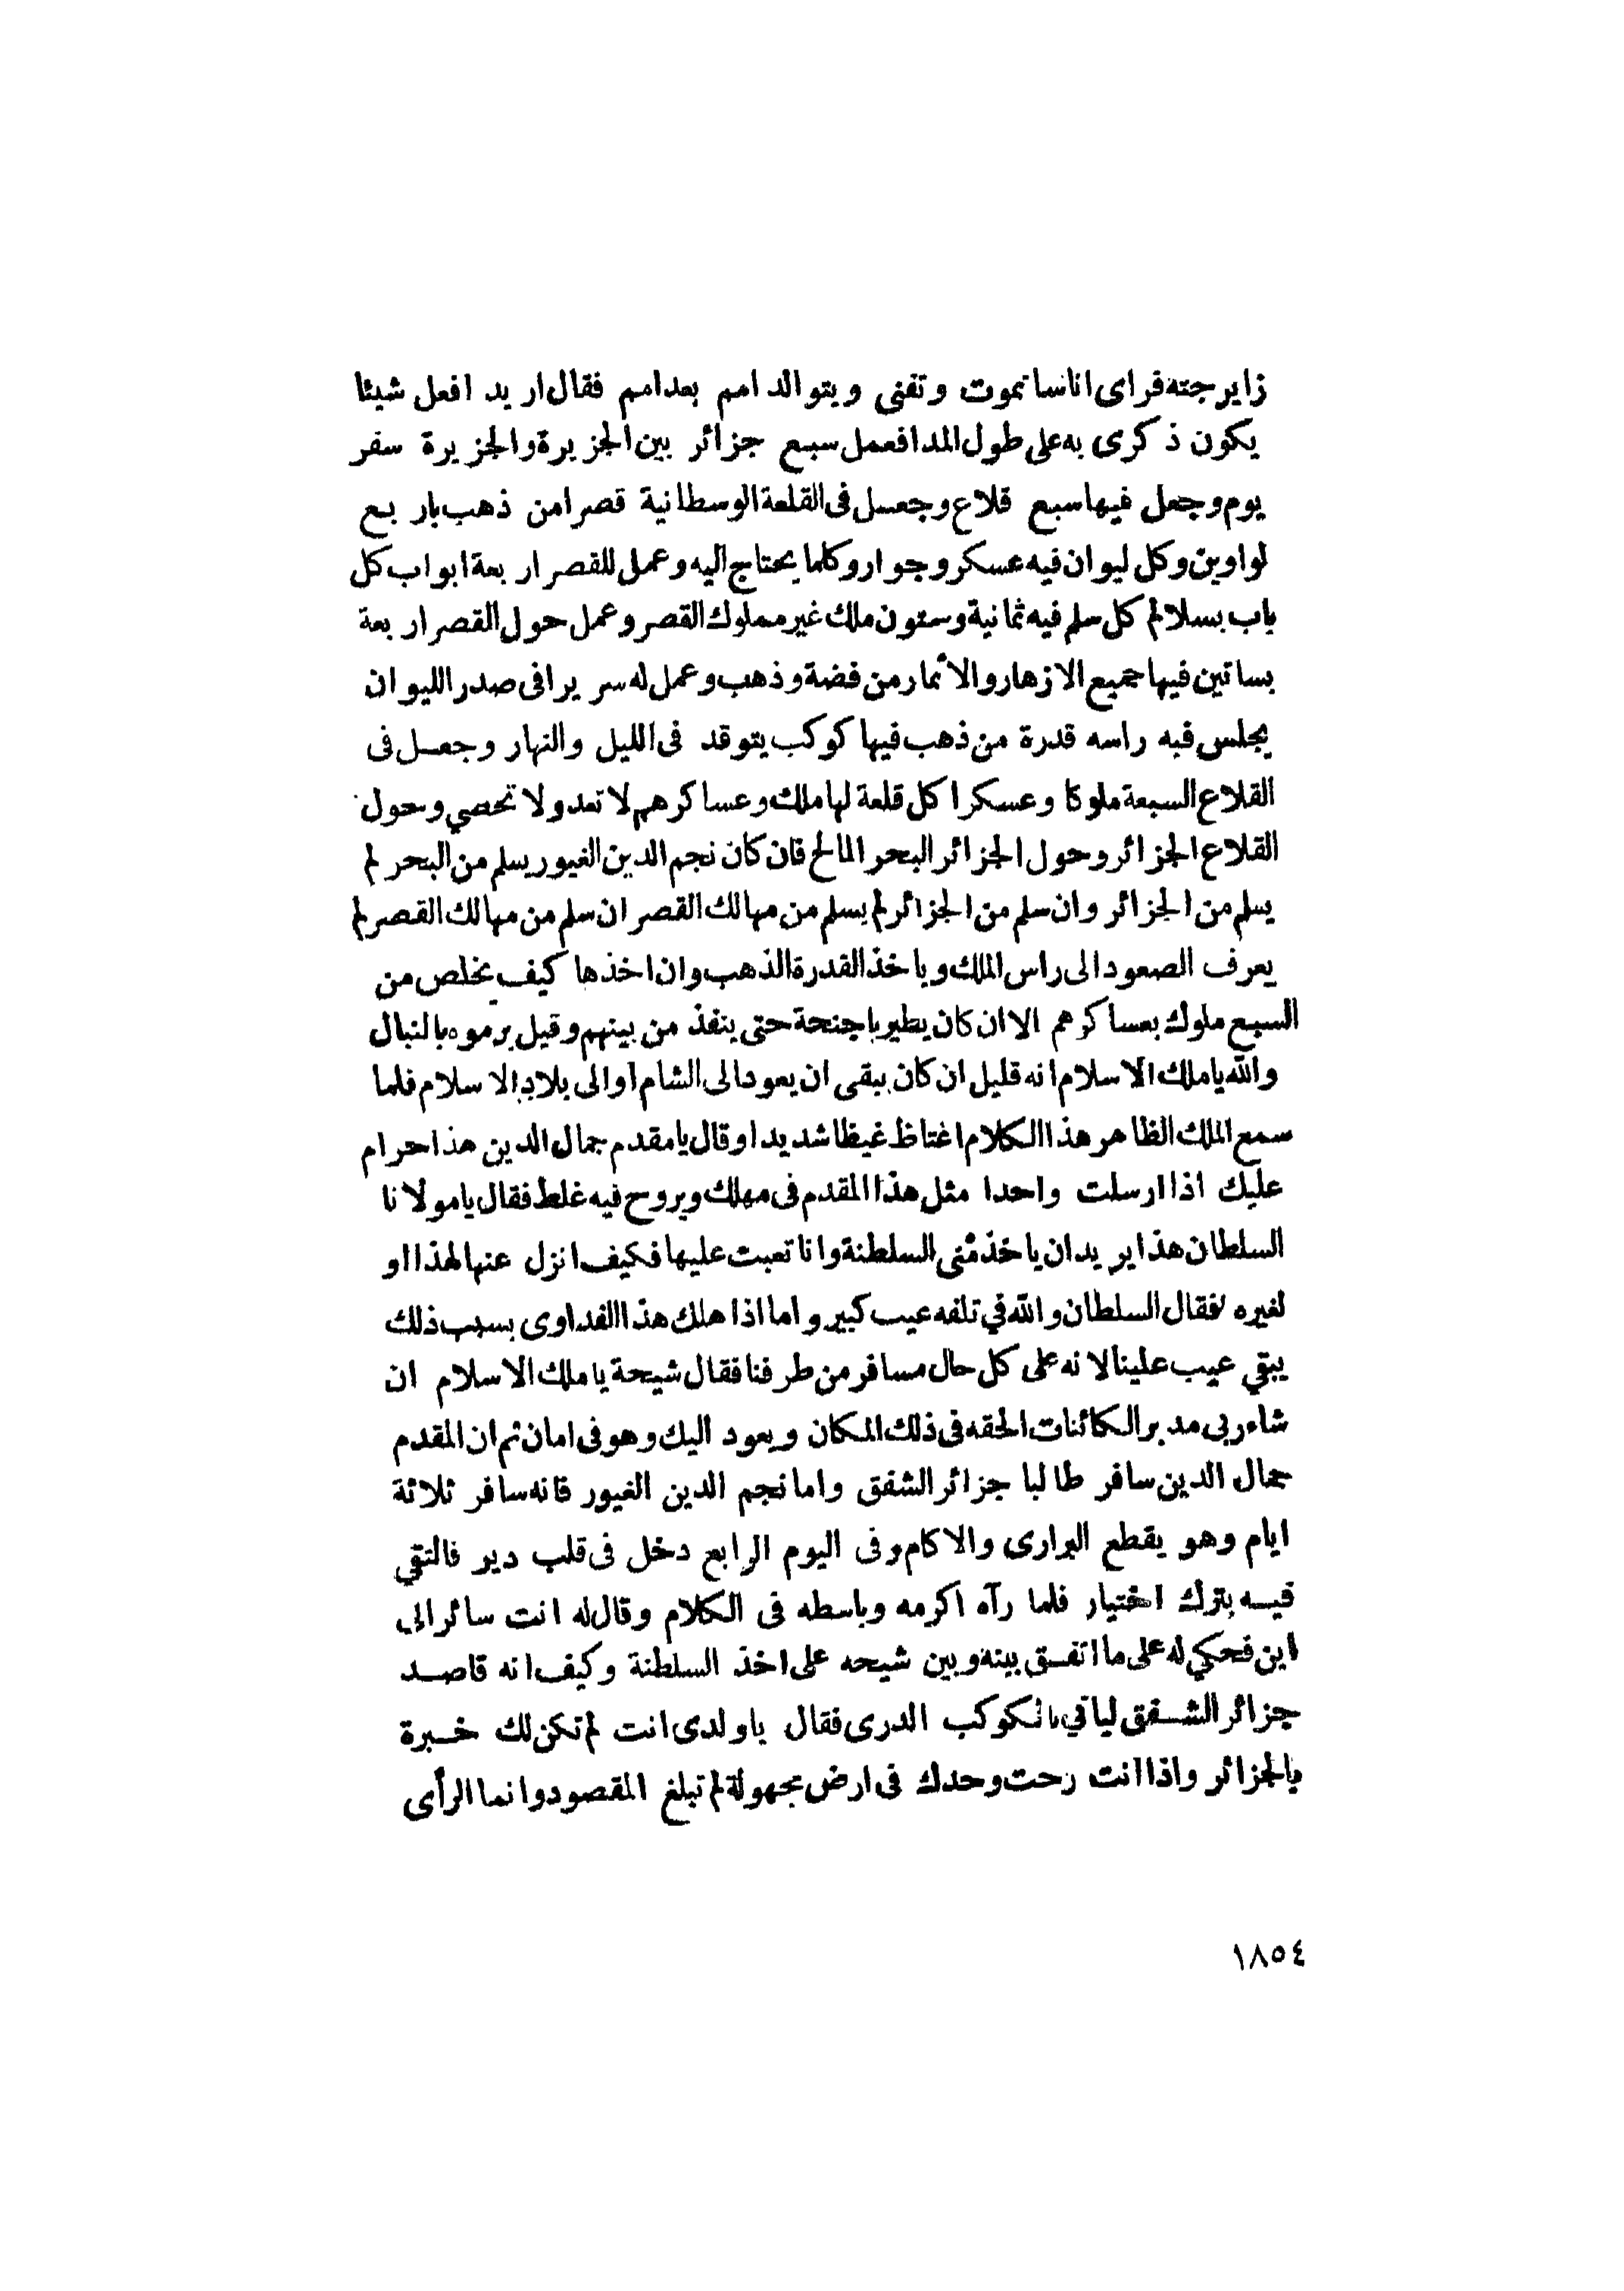 زايرجته فراى اناسا تموت وتفنى ويتوالد امم بعد امم فقال اريد افعل شيئا
يكون ذكرى به على طول المدا فعمل سبع جزائر بين الجزيرة والجزيرة سفر
يوم وجعل فيها سبع قلاع وجعل فى القلعة الوسطانية قصرا من ذهب باربع
لواوين وكل ليوان فيه عسكر وجوار وكلما يحتاج اليه وعمل للقصر اربعة ابواب كل
باب بسلالم كل سلم فيه ثمانية وستون ملك غير مملوك القصر وعمل حول القصر اربعة
بساتين فيها جميع الازهار والاثمار من فضة وذهب وعمل له سريرا فى صدر الليوان
يجلس فيه راسه قدرة من ذهب فيها كوكب يتوقد فى الليل والنهار وجعل فى
القلاع السبعة ملوكا وعسكرا كل قلعة لها ملك وعساكرهم لا تعد ولا تحصي وحول
القلاع الجزائر وحول الجزائر البحر المالح فان كان نجم الدين الغيور يسلم من البحر لم
يسلم من الجزائر وان سلم من الجزائر لم يسلم من مهالك القصر ان سلم من مهالك القصر لم
يعرف الصعود الى راس الملك وياخذ القدرة الذهب وان اخذها كيف يخلص من
السبع ملوك بعساكرهم الا ان كان يطير باجنحة حتى ينفذ من بينهم وقيل يرموه بالنبال
والله ياملك الاسلام انه قليل ان كان يبقى ان يعود الى الشام او الى بلاد الاسلام فلما
سمع الملك الظاهر هذا الكلام اغتاظ غيظا شديدا وقال يامقدم جمال الدين هذا حرام
عليك اذا ارسلت واحدا مثل هذا المقدم فى مهلك ويروح فيه غلط فقال يامولانا
السلطان هذا يريد ان ياخذ منى السلطنة وانا تعبت عليها فكيف انزل عنها لهذا او
لغيره فقال السلطان والله في تلفه عيب كبير واما اذا هلك هذا الفداوى بسبب ذلك
يبقي عيب علينا لانه على كل حال مسافر من طرفنا فقال شيحة ياملك الاسلام ان
شاء ربى مدبر الكائنات الحقه فى ذلك المكان ويعود اليك وهو فى امان ثم ان المقدم
جمال الدين سافر طالبا جزائر الشفق واما نجم الدين الغيور فانه سافر ثلاثة
ايام وهو يقطع البرارى والاكام وفى اليوم الرابع دخل فى قلب دير فالتقي
فيه بترك اختيار فلما رآه اكرمه وباسطه فى الكلام وقال له انت سائر الى
اين فحكي له على ما اتفق بينه وبين شيحه على اخذ السلطنة وكيف انه قاصد
جزائر الشفق لياتي بالكوكب الدرى فقال ياولدى انت لم تكن لك خبرة
بالجزائر واذا انت رحت وحدك فى ارض مجهولة لم تبلغ المقصود وانما الرأى
١٨٥٤